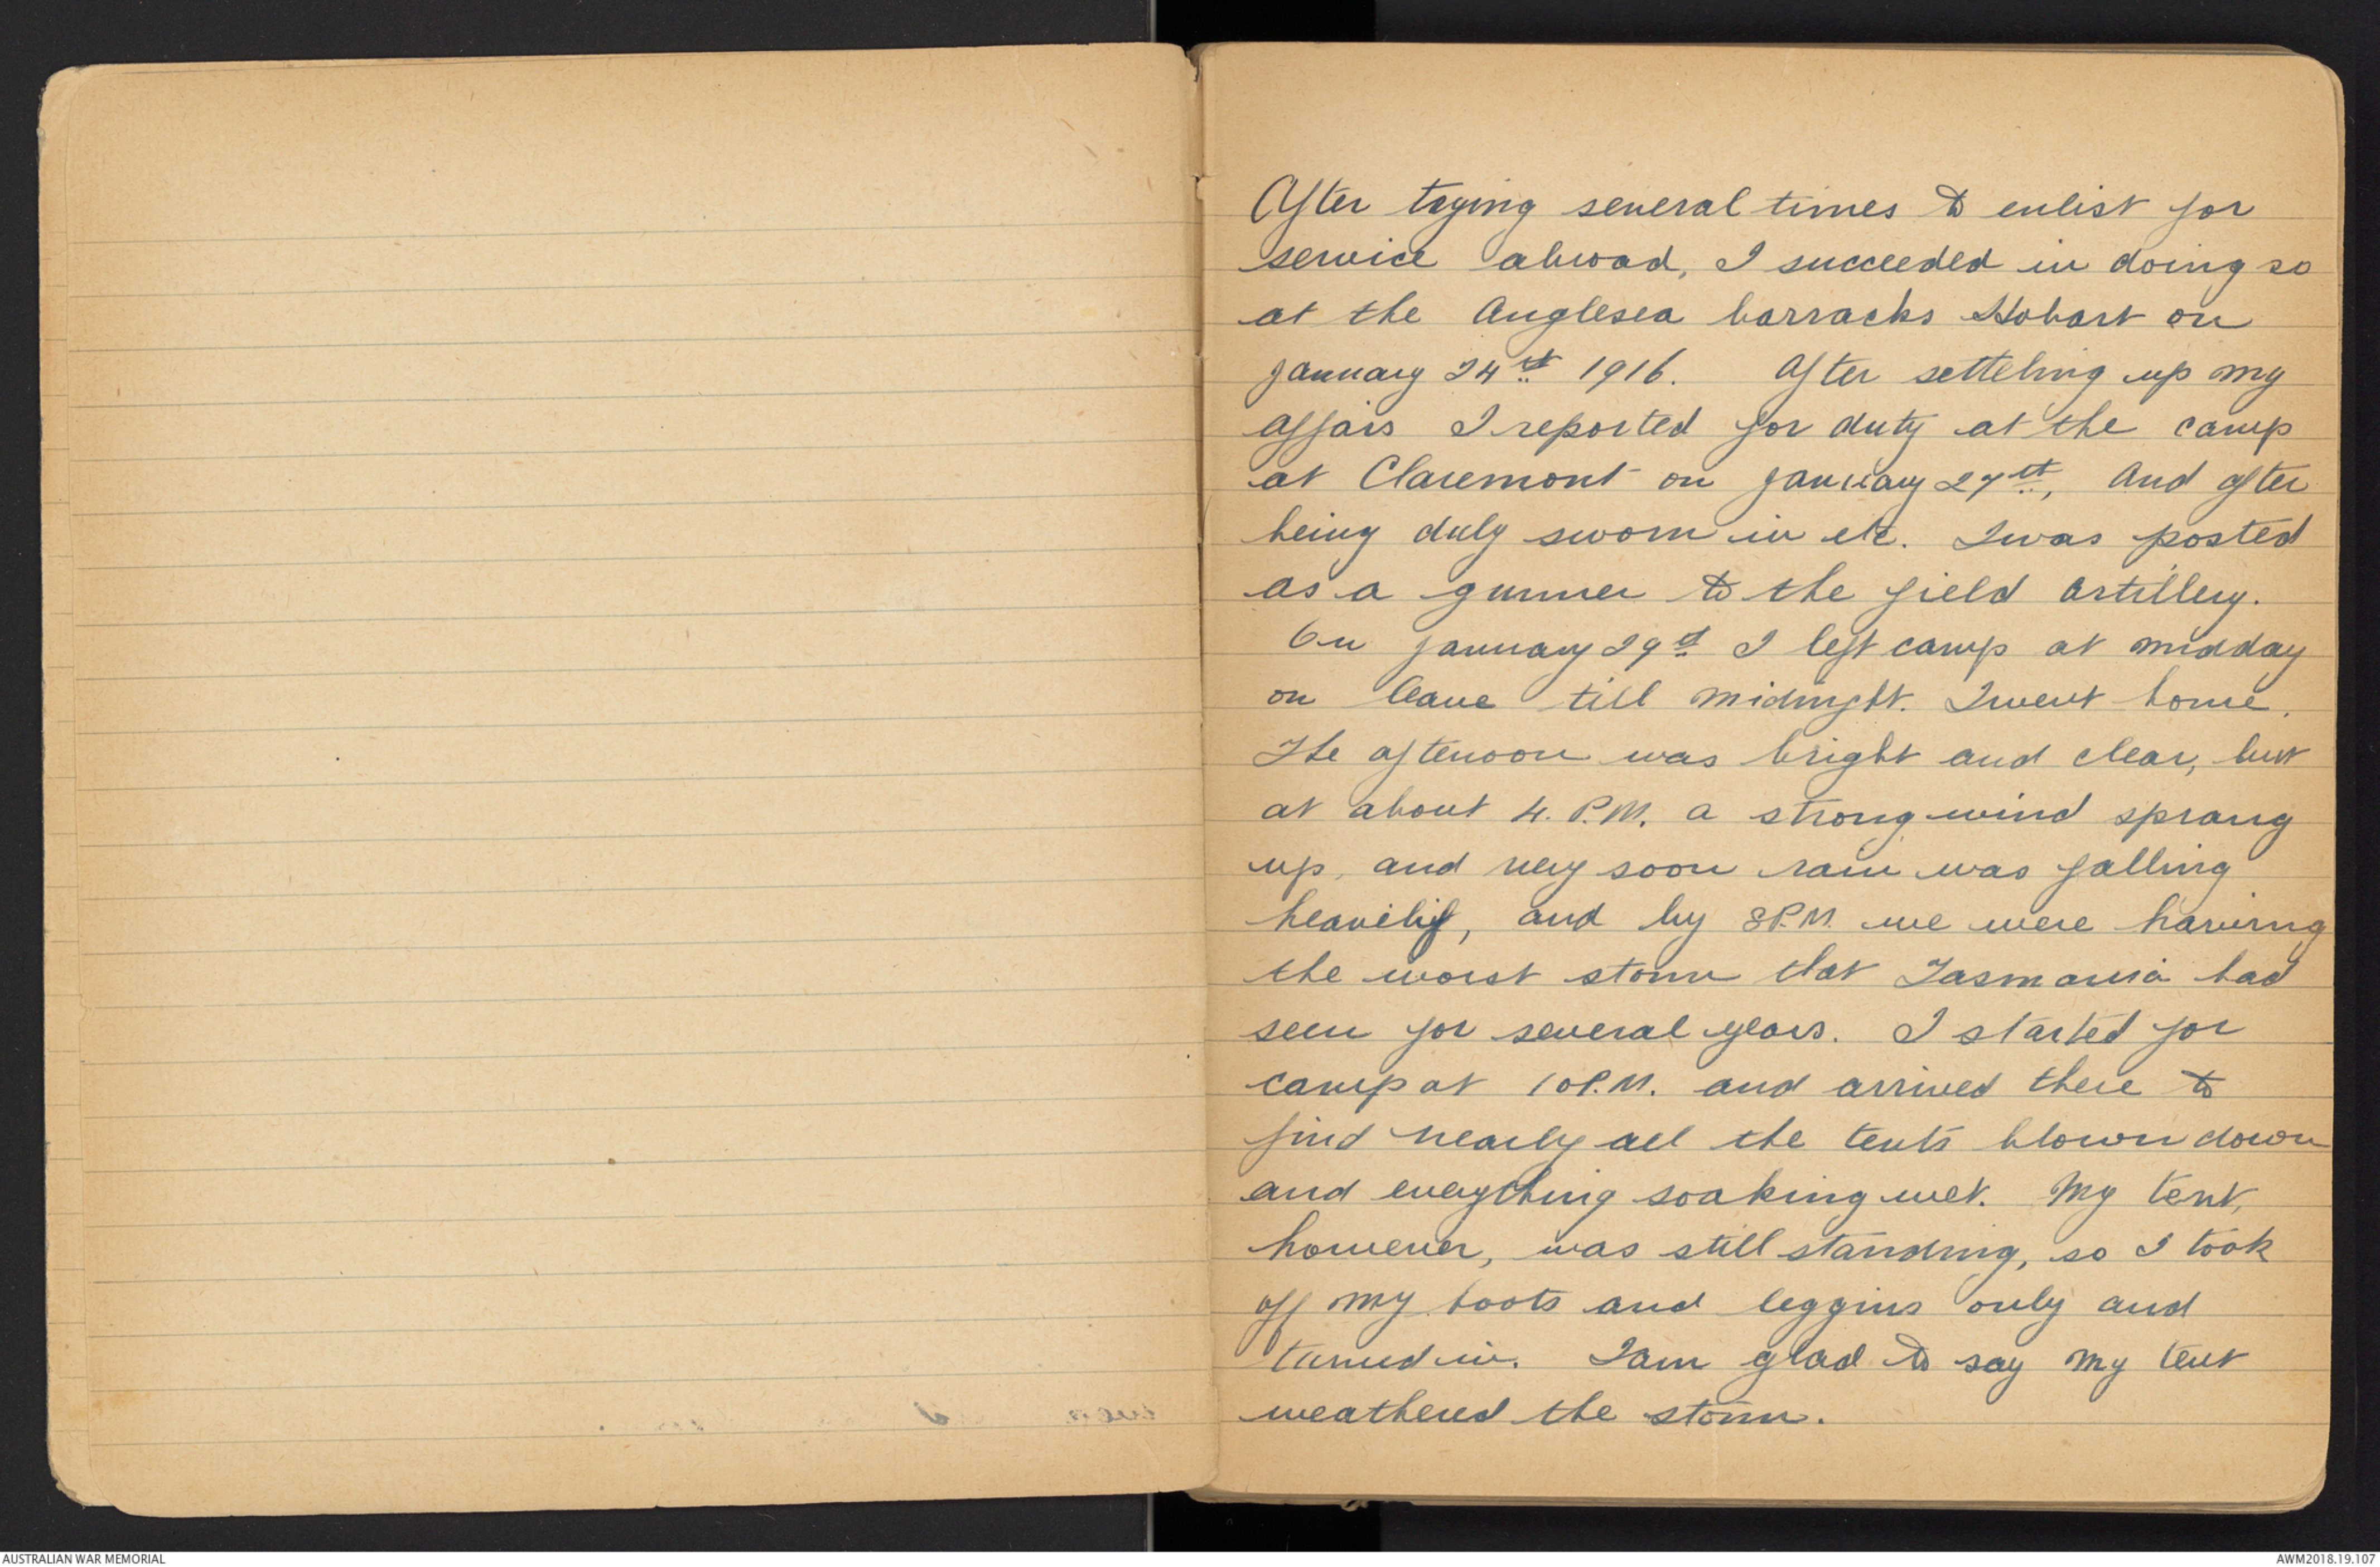 After trying several times to enlist for
service abroad, I succeeded in doing so
at the Anglesea barracks Hobart on
January 24th 1916. After setteling up my
affais I reported for duty at the camp
at Claremont on January 27th, and after
being duly sworn in etc. I was posted
as a gunner to the field artillery.
On January 29th I left camp at midday
on leave till midnight. I went home.
The afternoon was bright and clear, but
at about 4. P.M. a strong wind sprang
up, and very soon rain was falling
heavily, and by 8P.M. we were having
the worst storm that Tasmania had
seen for several years. I started for
camp at 10P.M. and arrived there to
find nearly all the tents blown down
and everything soaking wet. My tent,
however, was still standing, so I took
off my boots and leggins only and
turned in. I am glad to say my tent
weathered the storm.
AUSTRALIAN WAR MEMORIAL
AWM2018.19.107